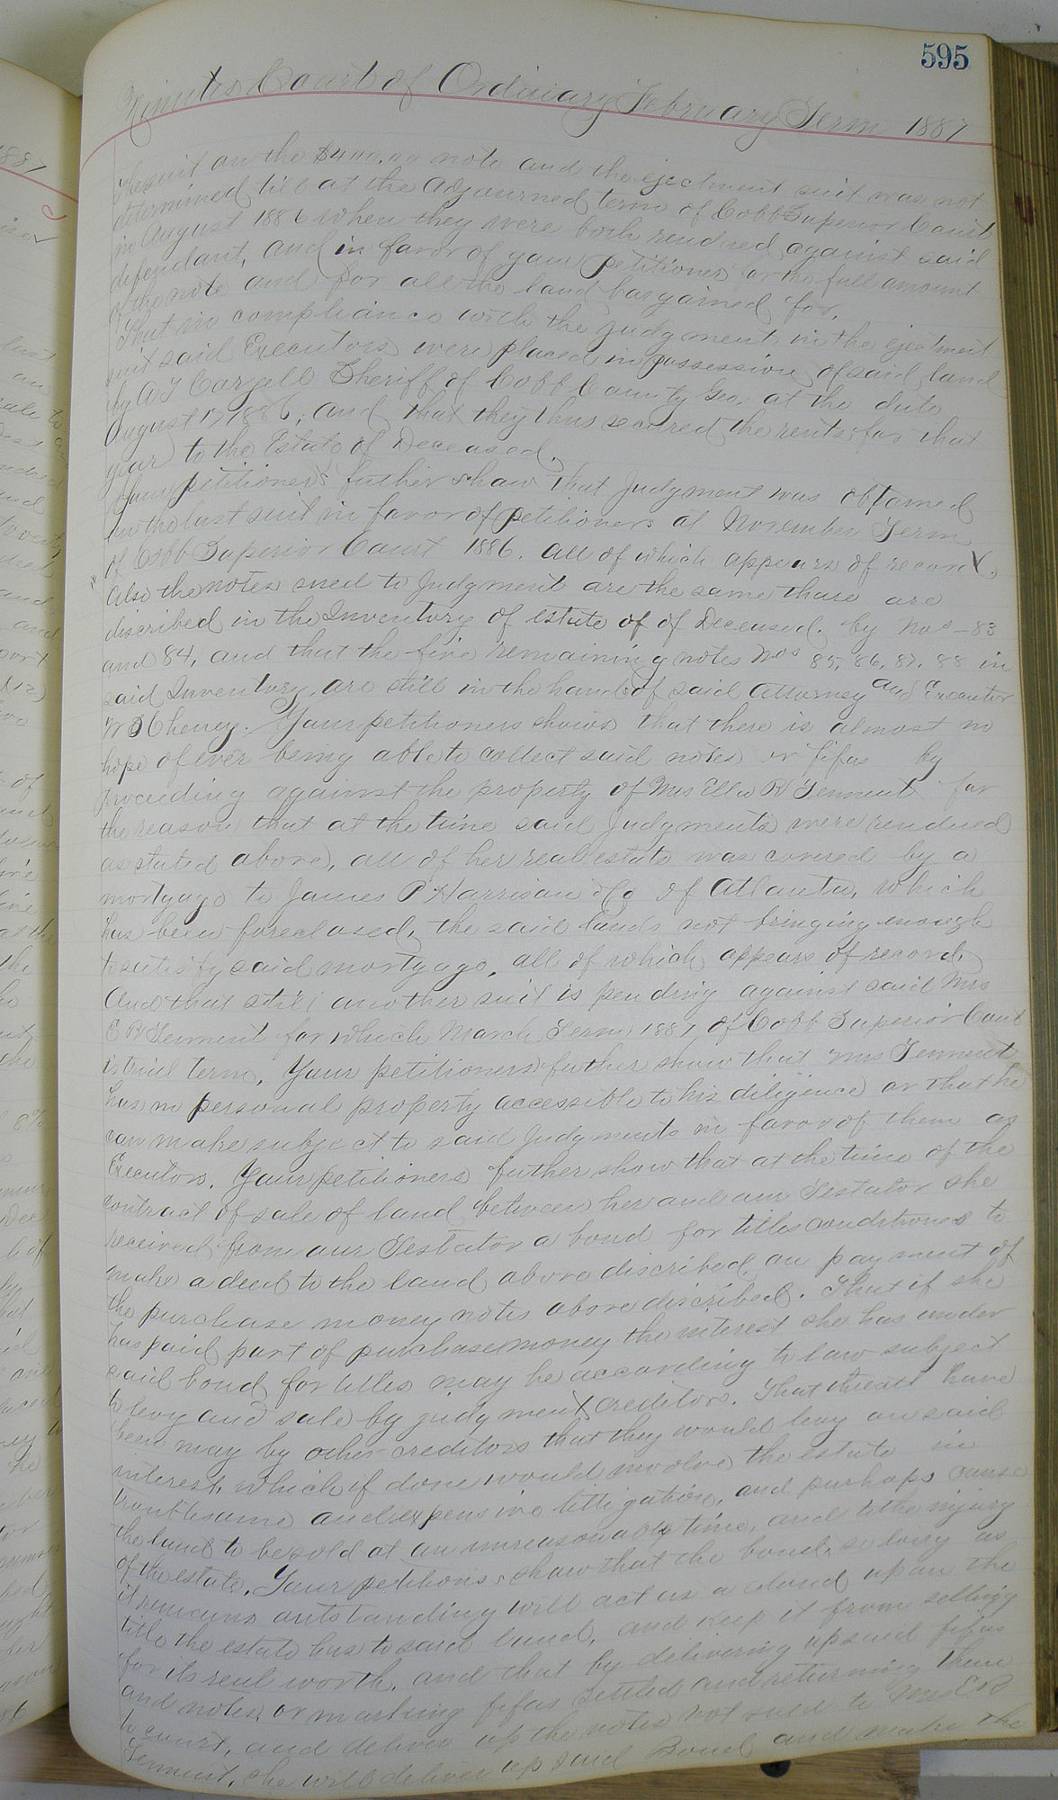 595
Minutes Court of Ordinary February Term 1887
The suit on the $400.00 note and the ejectment suit was not
determined till at the Adjourned term of Cobb Superior Court
in August 1886 when they were both rendered against said
defendant, and in favor of your petitioners for the full amount
of the note and for all the land bargained for.
That in compliance with the judgment in the ejectment
suit said Executors were placed in possession of said land
by A J Sheriff of Cobb County Geo, at the date
August 17, 1886, and that they thus secured the rents for that
year to the Estate of Deceased.
Your petitioners futher show that Judgment was obtained
on the last suit in favor of petitioners at November Term
of Cobb Superior Court 1886. all of which appears of record.
Also the notes sued to Judgment are the same those are
discribed in the Inventory of estate of of Deceased. by Nos - 83
and 84, and that the five remaining notes Nos 85, 86, 87, 88 in
said Inventory, are still in the hands of said Attorney and Executor
Cheney. Your petitioners shows that there is almost no
hope of ever being able to collect said notes or fifas by
proceeding against the property of Mrs Ella R Tennent for
the reason that at the time said Judgments were rendered
as stated above, all of her real estate was covered by a
mortgage to James P Harrison & Co of Atlanta, which
has been foreclosed, the said lands not bringing enough
to satisfy said mortgage, all of which appears of record.
And that still another suit is pending against said Mrs
E R Tennent for which March Term 1887 of Cobb Superior Court
is trial term. Your petitioners futher show that Mrs Tennent
has no personal property accessible to his diligence or that he
can make subject to said Judgments in favor of them as
Executors. Your petitioners futher show that at the time of the
contract of sale of land between her and our Testator she
received from our Testator a bond for titles conditioned to
make a deed to the land above discribed on payment of
the purchase money notes above discribed. That if she
has paid part of purchase money the interest she has under
said bond for titles may be according to law subject
to levy and sale by judgment creditors. That threats have
been may by other creditors that they would levy on said
interest, which if done would involve the estate in
troublesome and expensive litigation, and perhaps cause
the land to be sold at an unreasonable time, and to the injury
of the estate. Your petitions show that the bond, so long as
it remains outstanding will act as a cloud upon the
title the estate has to said land, and keep it from selling
for its real worth, and that by delivering up said fifas
and notes, or marking fifas settled and returning them
to court, and deliver up the notes not sued to Mrs E R
Tennent, she will deliver up said Bond and make the